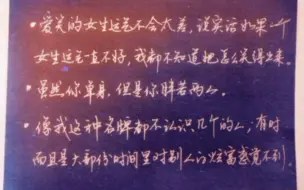 • 爱笑的女生运气不会太差，说实话如果一个
女生运气一直不好，我都不知道她怎么笑得出来。
• 虽然你单身，但是你胖若两人。
• 像我这种名牌都不认识几个的人，有时
而且是大部份时间里对别人的炫富感觉不到